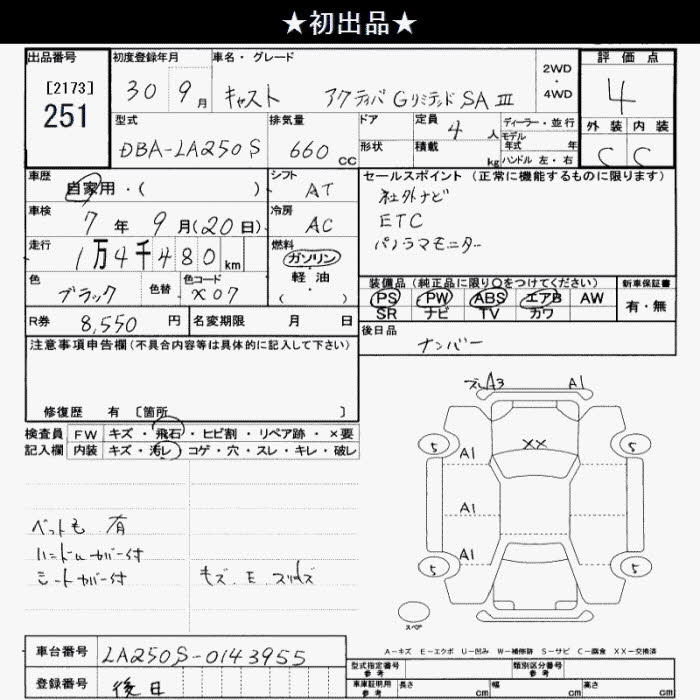 ★初出品★
出品番号 [2173] 251
初度登録年月 30 9月
車名・グレード キャスト アクティバ Gリミテッド SA Ⅲ
2WD・4WD
評価点 4
外装 内装
C C
型式 DBA-LA250S
排気量 660 CC
ドア
形状
定員 4人
積載 kg
ディーラー・並行
モデル年式 年
ハンドル 左・右
車歴 自家用・( )
シフト AT
車検 7年 9月(20日)
冷房 AC
走行 1万4千480 km
燃料 ガソリン 軽油 ( )
色 ブラック
色替
色コード X07
R券 8,550円
名変期限 月 日
セールスポイント (正常に機能するものに限ります)
社外ナビ
ETC
パノラマモニター
装備品 (純正品に限り〇をつけてください)
PS PW ABS エアB AW
SR ナビ TV カワ
新車保証書
有・無
後日品
ナンバー
注意事項申告欄(不具合内容等は具体的に記入して下さい)
修復歴 有 〔箇所 〕
検査員 FW キズ・飛石・ヒビ割・リペア跡・×要
記入欄 内装 キズ・汚レ・コゲ・穴・スレ・キレ・破レ
ズレA3 A1
XX
5 5
A1
A1
A1
5 5
スペア
有
ハンドルカバー付
シートカバー付
A-キズ E-エクボ U-凹み W-補修跡 S-サビ C-腐食 XX-交換済
車台番号 LA250S-0143955
登録番号 後日
型式指定番号 参考
類別区分番号 参考
車庫証明用 参考 長さ cm 幅 cm 高さ cm